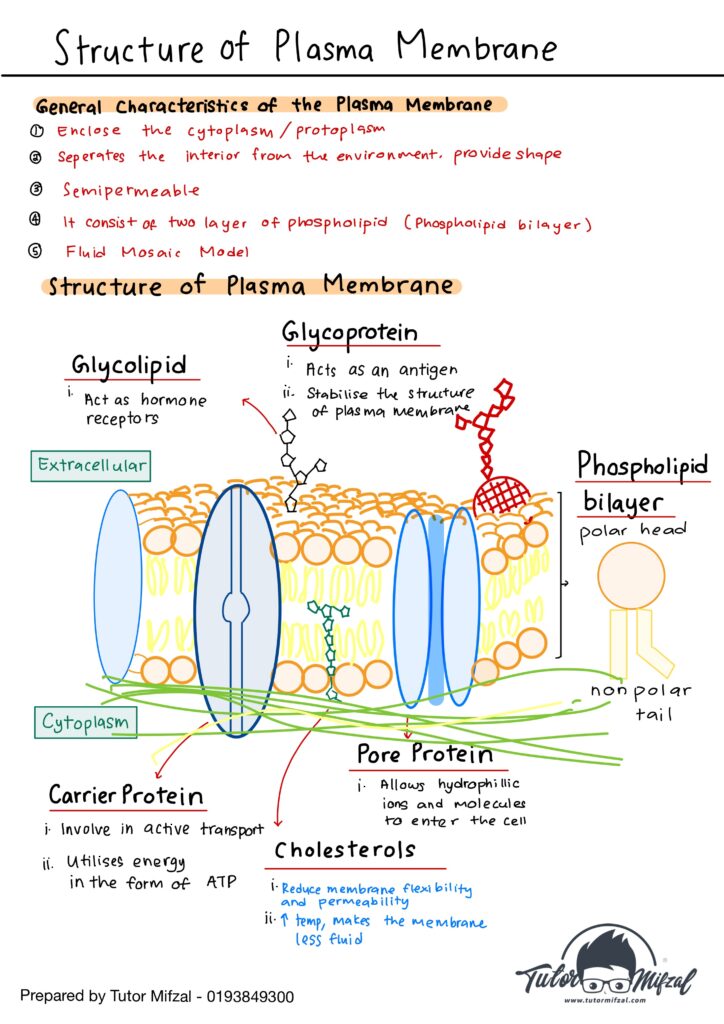 Structure of Plasma Membrane
General Characteristics of the Plasma Membrane
① Enclose the cytoplasm / protoplasm
② Seperates the interior from the environment. provide shape
③ Semipermeable
④ It consist of two layer of phospholipid (Phospholipid bilayer)
⑤ Fluid Mosaic Model
Structure of Plasma Membrane
Glycoprotein
i. Acts as an antigen
ii. Stabilise the structure
of plasma membrane
Glycolipid
i. Act as hormone
receptors
Extracellular
Phospholipid
bilayer
polar head
nonpolar
tail
Cytoplasm
Pore Protein
i. Allows hydrophillic
ions and molecules
to enter the cell
Carrier Protein
i. Involve in active transport
ii. Utilises energy
in the form of ATP
Cholesterols
i. Reduce membrane flexibility
and permeability
ii. ↑ temp, makes the membrane
less fluid
Tutor Mifzal
www.tutormifzal.com
Prepared by Tutor Mifzal - 0193849300